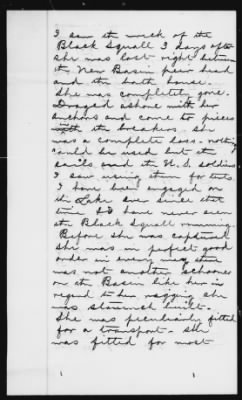 I saw the wreck of the
Black Squall 3 days after
she was lost right between
the New Basin pier head
and the bath house.
She was completely gone.
Draged ashore with her
anchors and come to pieces
with the breakers. She
was a complete loss. nothing
could be used but the
sails and the U.S. soldiers
I saw using them for tents.
I have been engaged on
the Lake ever since that
time & have never seen
the Black Squall running.
Before she was captured
she was in perfect good
order in every way there
was not another schooner
on the Basin like her in
regard to her rigging. She
was staunch built.
She was peculiarly fitted
for a transport. She
was fitted for most